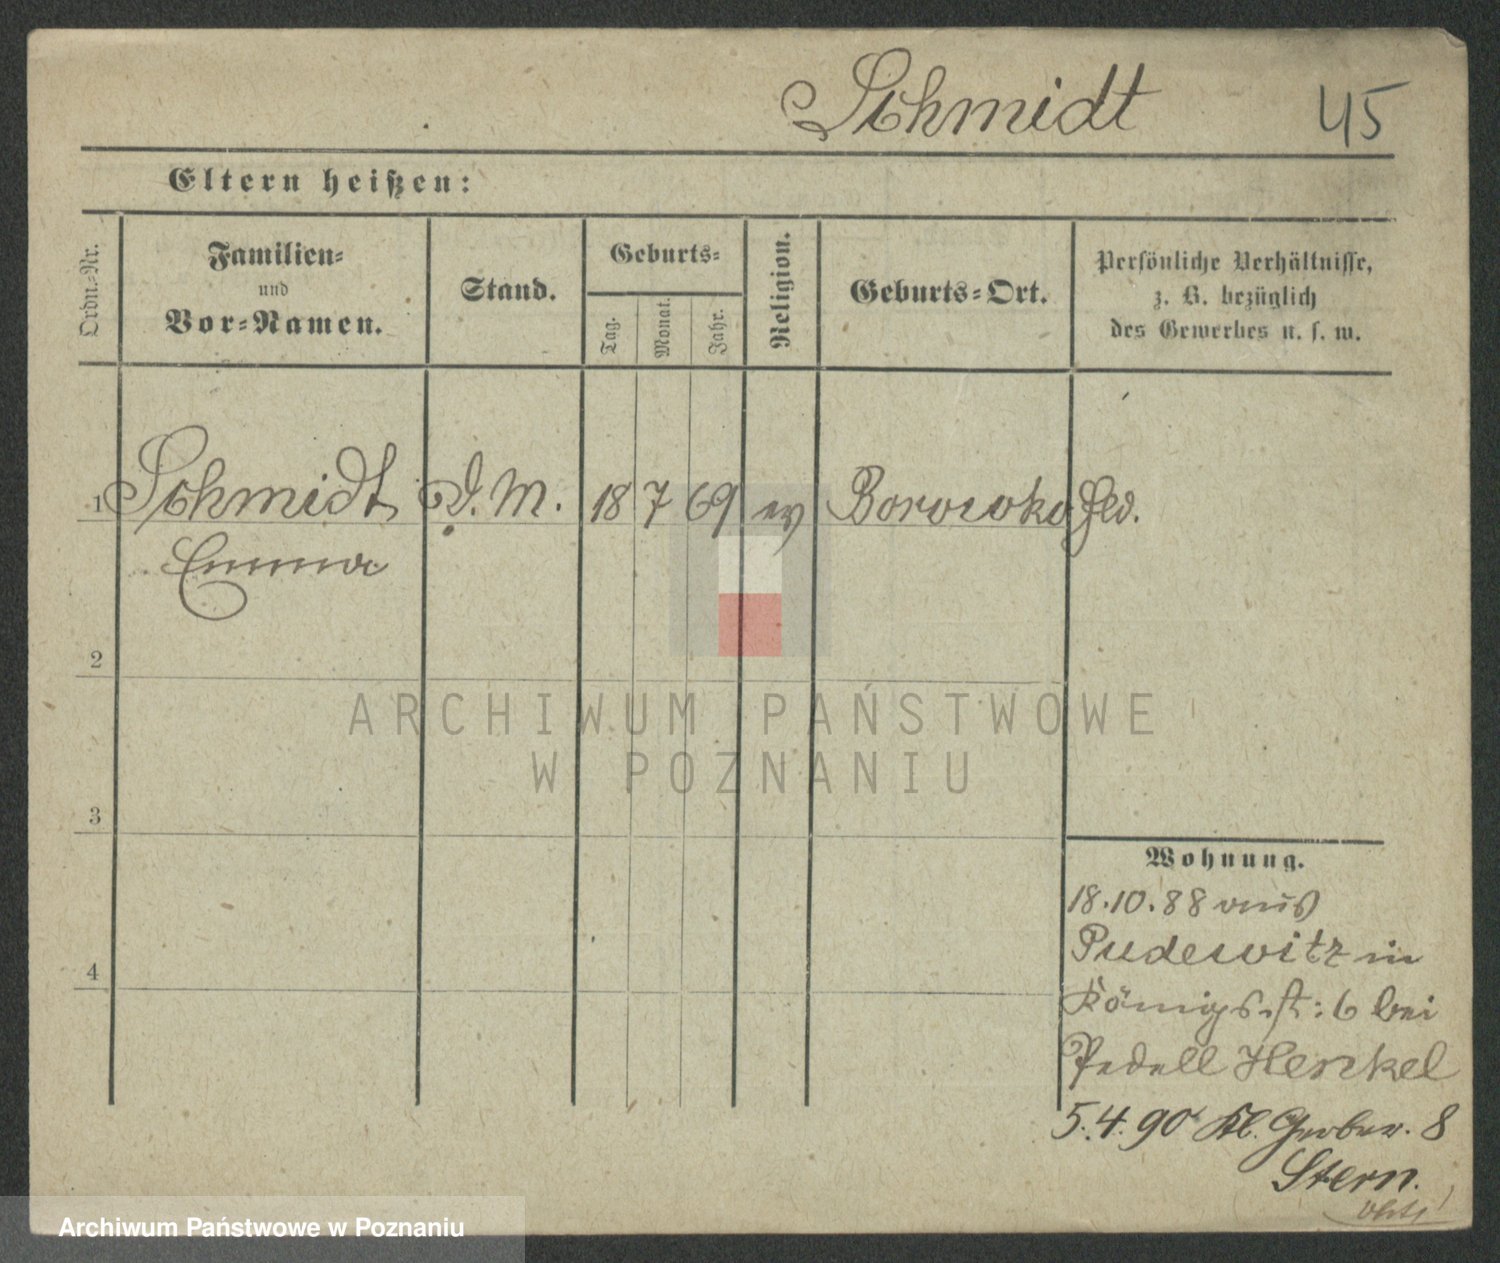 Schmidt 45
Eltern heißen:
Ordn.-Nr.
Familien-
und
Vor-Namen.
Stand.
Geburts-
Tag.
Monat.
Jahr.
Religion.
Geburts-Ort.
Persönliche Verhältnisse,
z. B. bezüglich
des Gewerbes u. s. w.
1 Schmidt D. M. 18 7 69 ev Borowko Hld.
Emma
2
3
4
Wohnung.
18.10.88 aus
Pudewitz in
Königsst: 6 bei
Pedell Henkel
5.4.90 Kl. Gerber. 8
Stern.
ARCHIWUM PAŃSTWOWE
W POZNANIU
Archiwum Państwowe w Poznaniu